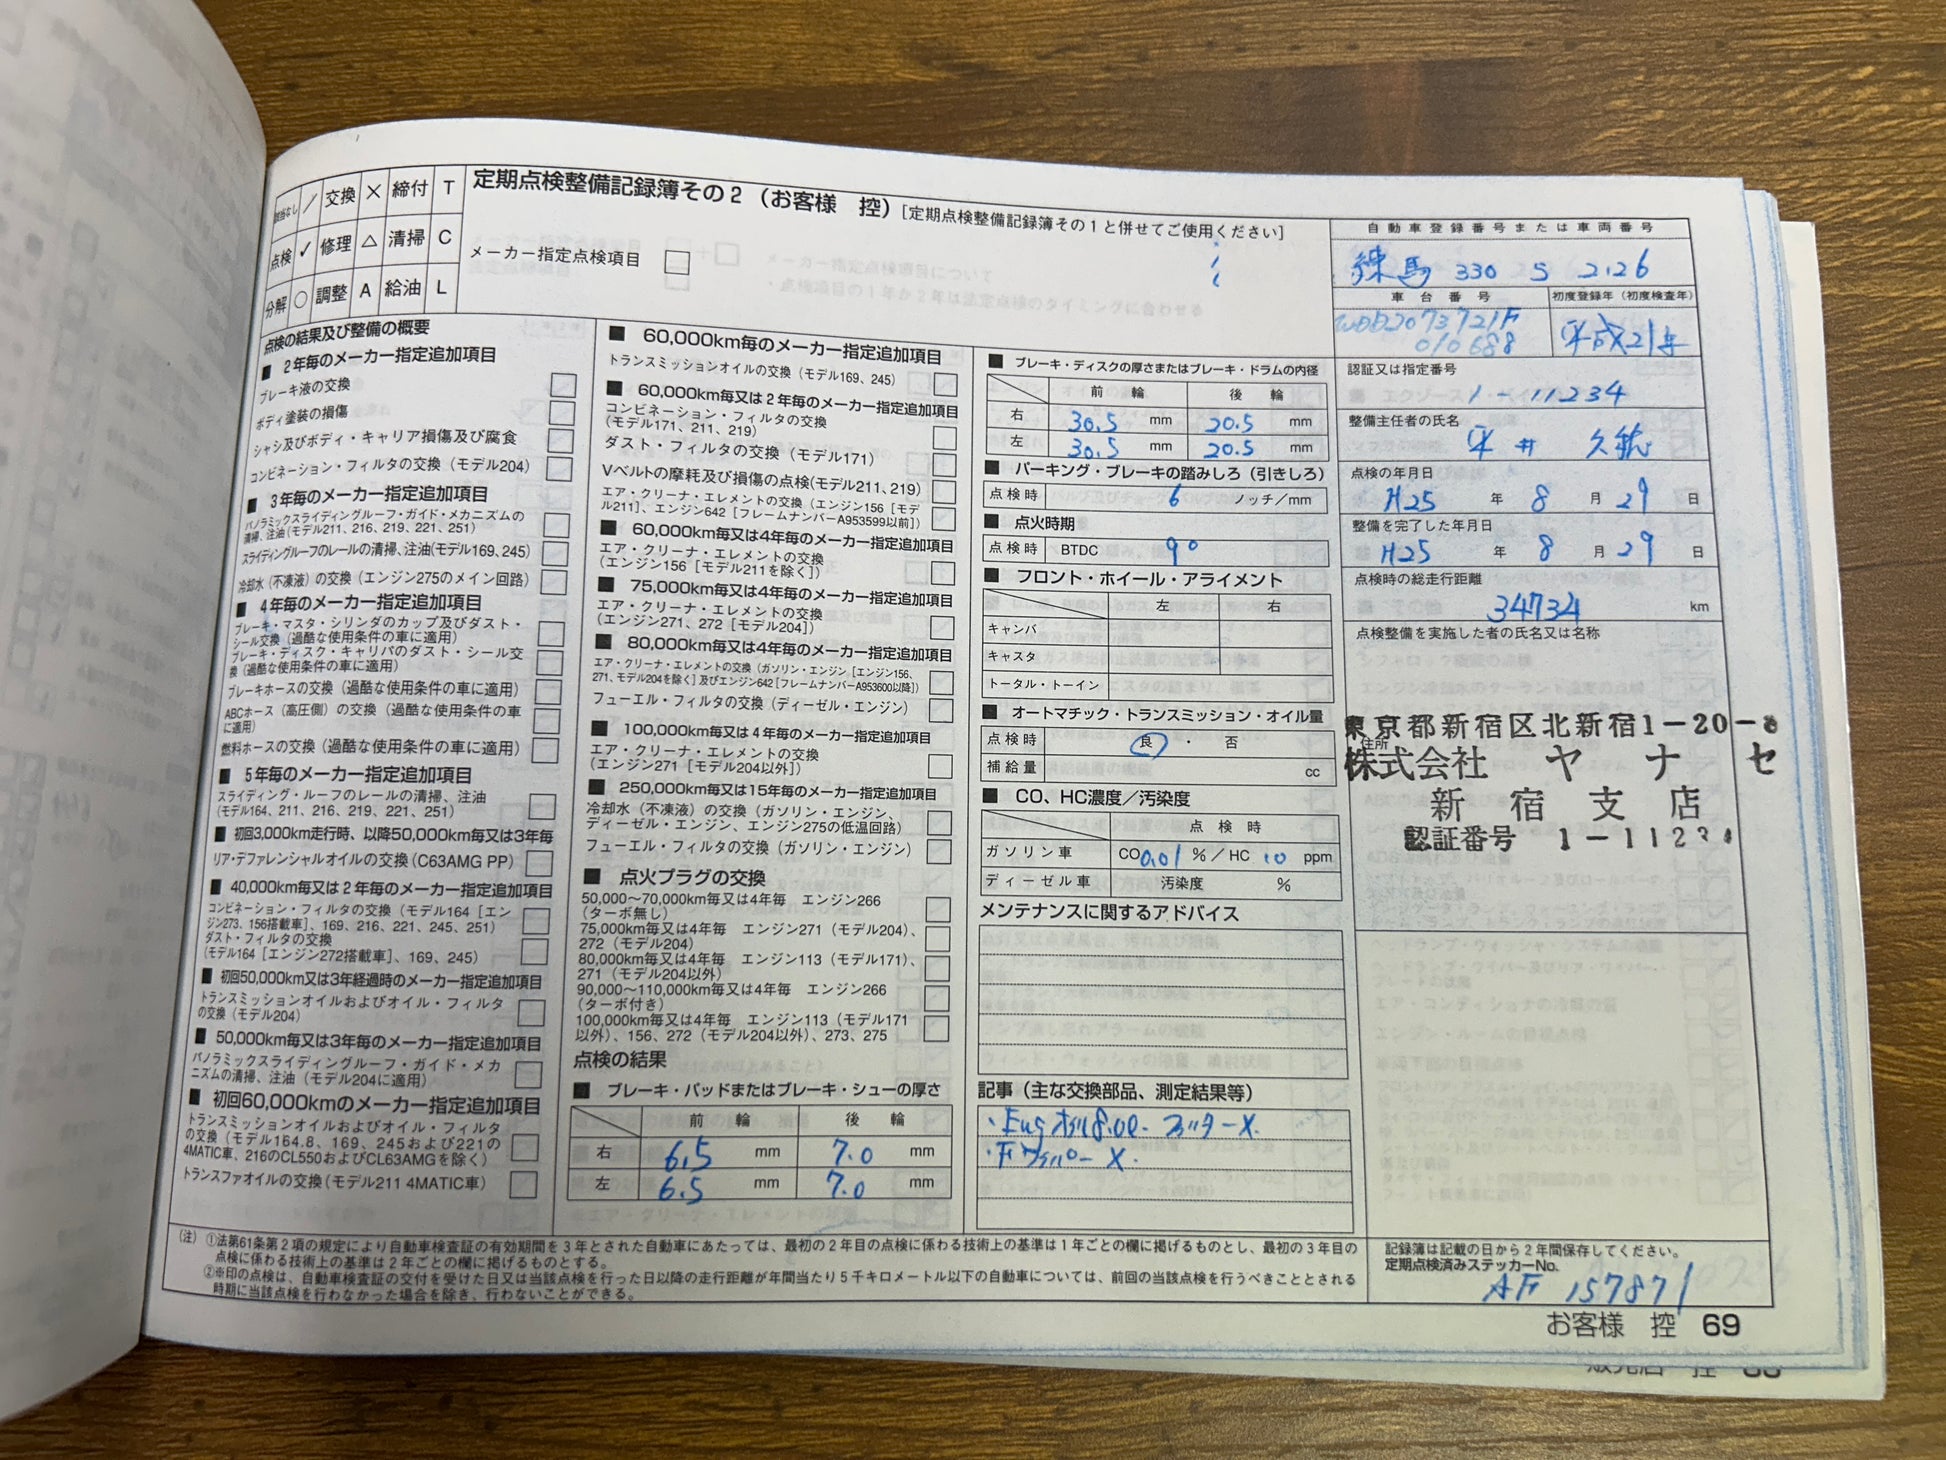 該当なし ／ 交換 × 締付 T
点検 ✓ 修理 △ 清掃 C
分解 ○ 調整 A 給油 L
定期点検整備記録簿その2（お客様 控）[定期点検整備記録簿その1と併せてご使用ください]
メーカー指定点検項目
点検の結果及び整備の概要
■ 2年毎のメーカー指定追加項目
ブレーキ液の交換
ボディ塗装の損傷
シャシ及びボディ・キャリア損傷及び腐食
コンビネーション・フィルタの交換（モデル204）
■ 3年毎のメーカー指定追加項目
パノラミックスライディングルーフ・ガイド・メカニズムの
清掃、注油（モデル211、216、219、221、251）
スライディングルーフのレールの清掃、注油(モデル169、245)
冷却水（不凍液）の交換（エンジン275のメイン回路）
■ 4年毎のメーカー指定追加項目
ブレーキ・マスタ・シリンダのカップ及びダスト・
シール交換（過酷な使用条件の車に適用）
ブレーキ・ディスク・キャリパのダスト・シール交
換（過酷な使用条件の車に適用）
ブレーキホースの交換（過酷な使用条件の車に適用）
ABCホース（高圧側）の交換（過酷な使用条件の車
に適用）
燃料ホースの交換（過酷な使用条件の車に適用）
■ 5年毎のメーカー指定追加項目
スライディング・ルーフのレールの清掃、注油
（モデル164、211、216、219、221、251）
■ 初回3,000km走行時、以降50,000km毎又は3年毎
リア・デファレンシャルオイルの交換（C63AMG PP）
■ 40,000km毎又は2年毎のメーカー指定追加項目
コンビネーション・フィルタの交換（モデル164［エン
ジン273、156搭載車］、169、216、221、245、251）
ダスト・フィルタの交換
（モデル164［エンジン272搭載車］、169、245）
■ 初回50,000km又は3年経過時のメーカー指定追加項目
トランスミッションオイルおよびオイル・フィルタ
の交換（モデル204）
■ 50,000km毎又は3年毎のメーカー指定追加項目
パノラミックスライディングルーフ・ガイド・メカ
ニズムの清掃、注油（モデル204に適用）
■ 初回60,000kmのメーカー指定追加項目
トランスミッションオイルおよびオイル・フィルタ
の交換（モデル164.8、169、245および221の
4MATIC車、216のCL550およびCL63AMGを除く）
トランスファオイルの交換（モデル211 4MATIC車）
■ 60,000km毎のメーカー指定追加項目
トランスミッションオイルの交換（モデル169、245）
■ 60,000km毎又は2年毎のメーカー指定追加項目
コンビネーション・フィルタの交換
（モデル171、211、219）
ダスト・フィルタの交換（モデル171）
Vベルトの摩耗及び損傷の点検(モデル211、219)
エア・クリーナ・エレメントの交換（エンジン156［モデ
ル211］、エンジン642［フレームナンバーA953599以前］）
■ 60,000km毎又は4年毎のメーカー指定追加項目
エア・クリーナ・エレメントの交換
（エンジン156［モデル211を除く］）
■ 75,000km毎又は4年毎のメーカー指定追加項目
エア・クリーナ・エレメントの交換
（エンジン271、272［モデル204］）
■ 80,000km毎又は4年毎のメーカー指定追加項目
エア・クリーナ・エレメントの交換（ガソリン・エンジン［エンジン156、
271、モデル204を除く］及びエンジン642［フレームナンバーA953600以降］）
フューエル・フィルタの交換（ディーゼル・エンジン）
■ 100,000km毎又は4年毎のメーカー指定追加項目
エア・クリーナ・エレメントの交換
（エンジン271［モデル204以外］）
■ 250,000km毎又は15年毎のメーカー指定追加項目
冷却水（不凍液）の交換（ガソリン・エンジン、
ディーゼル・エンジン、エンジン275の低温回路）
フューエル・フィルタの交換（ガソリン・エンジン）
■ 点火プラグの交換
50,000〜70,000km毎又は4年毎 エンジン266
（ターボ無し）
75,000km毎又は4年毎 エンジン271（モデル204）、
272（モデル204）
80,000km毎又は4年毎 エンジン113（モデル171）、
271（モデル204以外）
90,000〜110,000km毎又は4年毎 エンジン266
（ターボ付き）
100,000km毎又は4年毎 エンジン113（モデル171
以外）、156、272（モデル204以外）、273、275
点検の結果
■ ブレーキ・パッドまたはブレーキ・シューの厚さ
前輪 後輪
右 6.5 mm 7.0 mm
左 6.5 mm 7.0 mm
■ ブレーキ・ディスクの厚さまたはブレーキ・ドラムの内径
前輪 後輪
右 30.5 mm 20.5 mm
左 30.5 mm 20.5 mm
■ パーキング・ブレーキの踏みしろ（引きしろ）
点検時 6 ノッチ/mm
■ 点火時期
点検時 BTDC 9°
■ フロント・ホイール・アライメント
左 右
キャンバ
キャスタ
トータル・トーイン
■ オートマチック・トランスミッション・オイル量
点検時 良 ・ 否
補給量 cc
■ CO、HC濃度／汚染度
点検時
ガソリン車 CO 0.01 %／HC 10 ppm
ディーゼル車 汚染度 %
メンテナンスに関するアドバイス
記事（主な交換部品、測定結果等）
・Engオイル8.0ℓ・フィルターX.
・Fワイパー X.
自動車登録番号または車両番号
練馬 330 S 2126
車台番号 初度登録年（初度検査年）
WDD2073721F
010688
平成21年
認証又は指定番号
1-11234
整備主任者の氏名
平井
点検の年月日
H25 年 8 月 29 日
整備を完了した年月日
H25 年 8 月 29 日
点検時の総走行距離
34734 km
点検整備を実施した者の氏名又は名称
東京都新宿区北新宿1-20-
住所
株式会社 ヤナセ
新宿支店
認証番号 1-11234
（注）①法第61条第2項の規定により自動車検査証の有効期間を3年とされた自動車にあたっては、最初の2年目の点検に係わる技術上の基準は1年ごとの欄に掲げるものとし、最初の3年目の
点検に係わる技術上の基準は2年ごとの欄に掲げるものとする。
②※印の点検は、自動車検査証の交付を受けた日又は当該点検を行った日以降の走行距離が年間当たり5千キロメートル以下の自動車については、前回の当該点検を行うべきこととされる
時期に当該点検を行わなかった場合を除き、行わないことができる。
記録簿は記載の日から2年間保存してください。
定期点検済みステッカーNo.
AF 157871
お客様 控 69